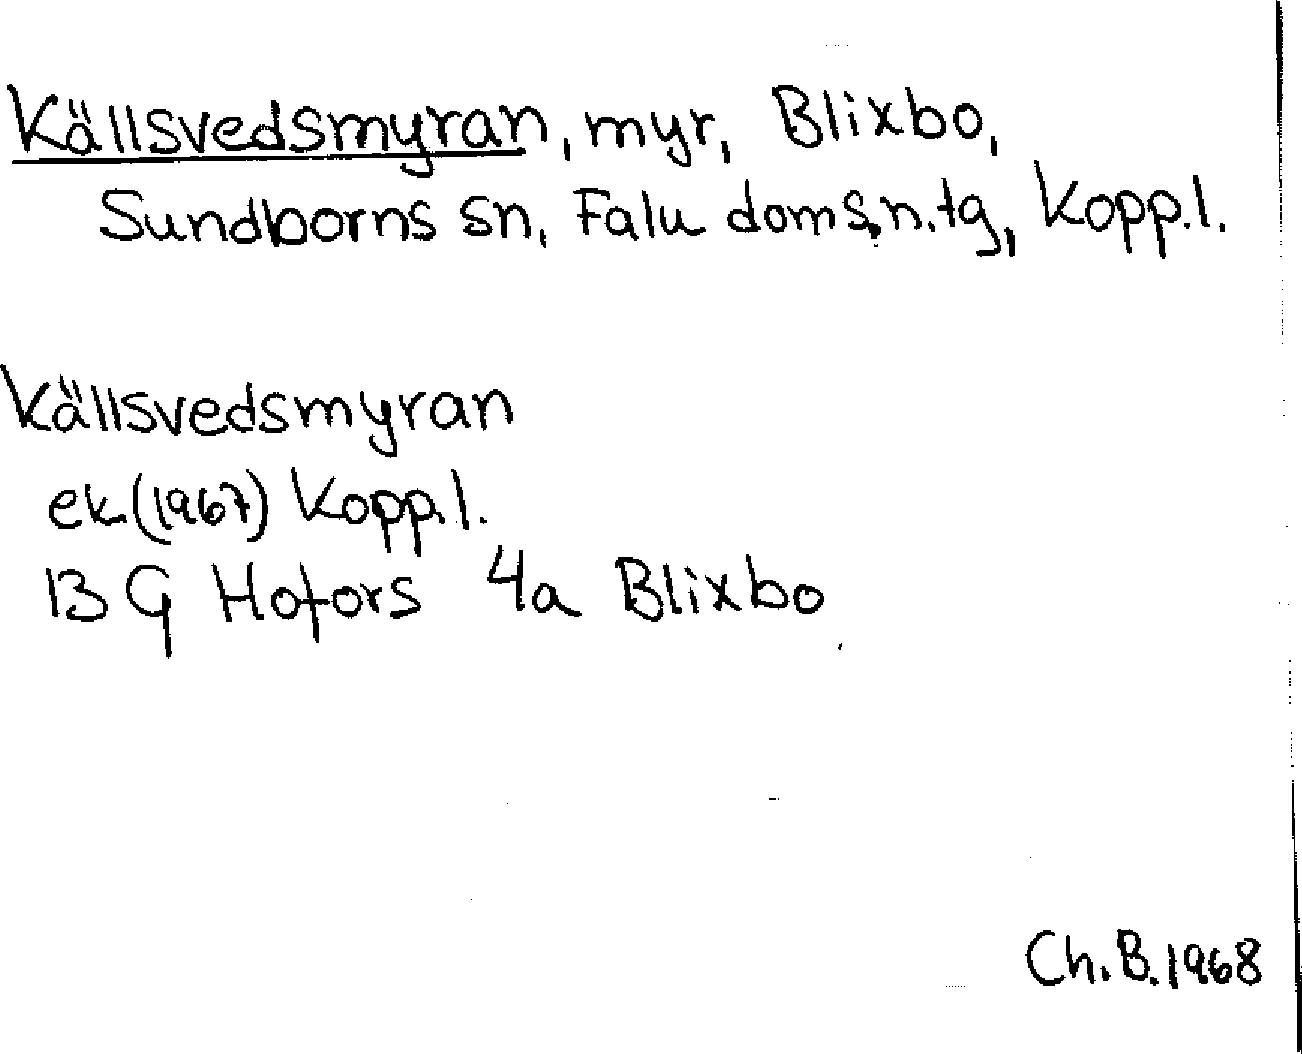 Källsvedsmyran, myr, Blixbo,
Sundborns sn, Falu doms.n.tg, Kopp.l.
Källsvedsmyran
ek.(1967) Kopp.l.
13 G Hofors 4a Blixbo
Ch.B.1968